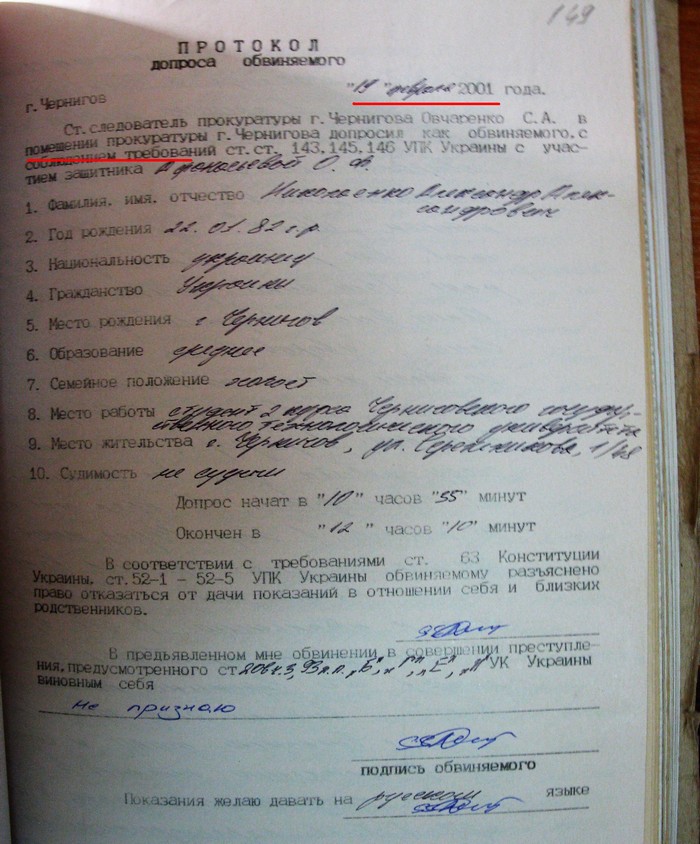 149
ПРОТОКОЛ
допроса обвиняемого
г. Чернигов "19" февраля 2001 года.
Ст.следователь прокуратуры г.Чернигова Овчаренко С.А. в
помещении прокуратуры г.Чернигова допросил как обвиняемого, с
соблюдением требований ст.ст. 143,145,146 УПК Украины с учас-
тием защитника Афанасьевой О.Ф.
1. Фамилия, имя, отчество Николаенко Александр Алек-
сандрович
2. Год рождения 22.01.82 г.р.
3. Национальность украинец
4. Гражданство Украины
5. Место рождения г. Чернигов
6. Образование среднее
7. Семейное положение холост
8. Место работы студент 2 курса Черниговского государ-
ственного технологического университета
9. Место жительства г. Чернигов, ул.
10. Судимость не судим
Допрос начат в "10" часов "55" минут
Окончен в "12" часов "10" минут
В соответствии с требованиями ст. 63 Конституции
Украины, ст.52-1 - 52-5 УПК Украины обвиняемому разъяснено
право отказаться от дачи показаний в отношении себя и близких
родственников.
В предьявленном мне обвинении в совершении преступле-
ния, предусмотренного ст УК Украины
виновным себя
не признаю
подпись обвиняемого
Показания желаю давать на русском языке